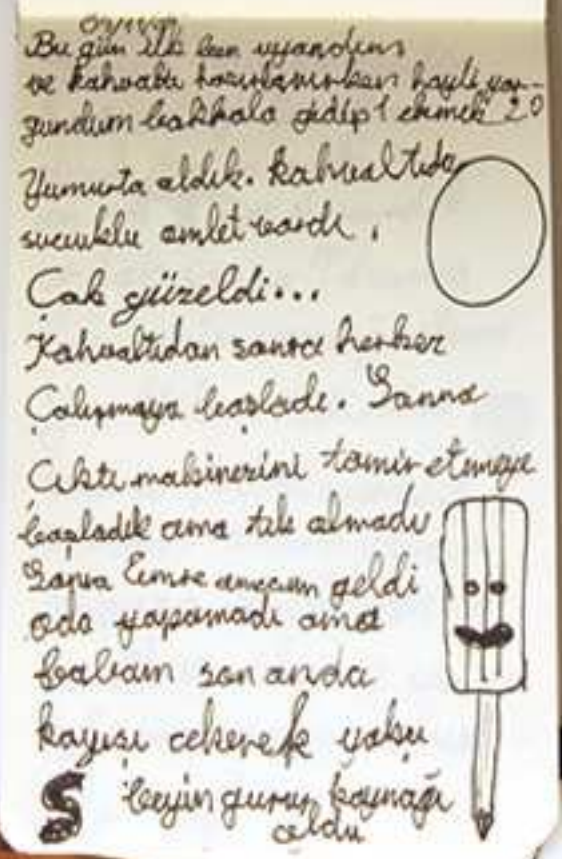 Bu gün ilk ben uyandım
ve kahvaltı hazırlanırken hayli yor-
gundum bakkala gidip 1 ekmek 20
Yumurta aldık. Kahvaltıda
sucuklu omlet vardı.
Çok güzeldi...
Kahvaltıdan sonra herkez
Çalışmaya başladı. Sonra
Çıktı makinesini tamir etmeye
başladık ama tık olmadı
Sonra Emre amcam geldi
oda yapamadı ama
babam son anda
kayışı çekerek yoksu
beyin gurur kaynağı
oldu
S